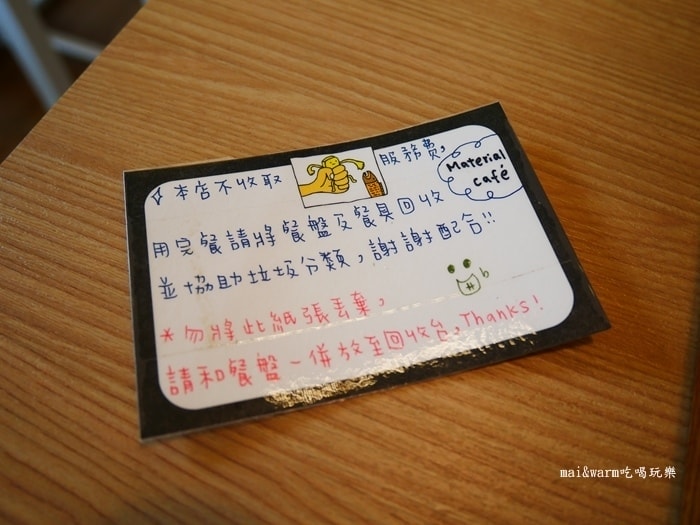 本店不收取 服務費,
Material
café
用完餐請將餐盤及餐具回收
並協助垃圾分類,謝謝配合!!
*勿將此紙張丟棄,
請和餐盤一併放至回收台,Thanks!
mai&warm吃喝玩樂